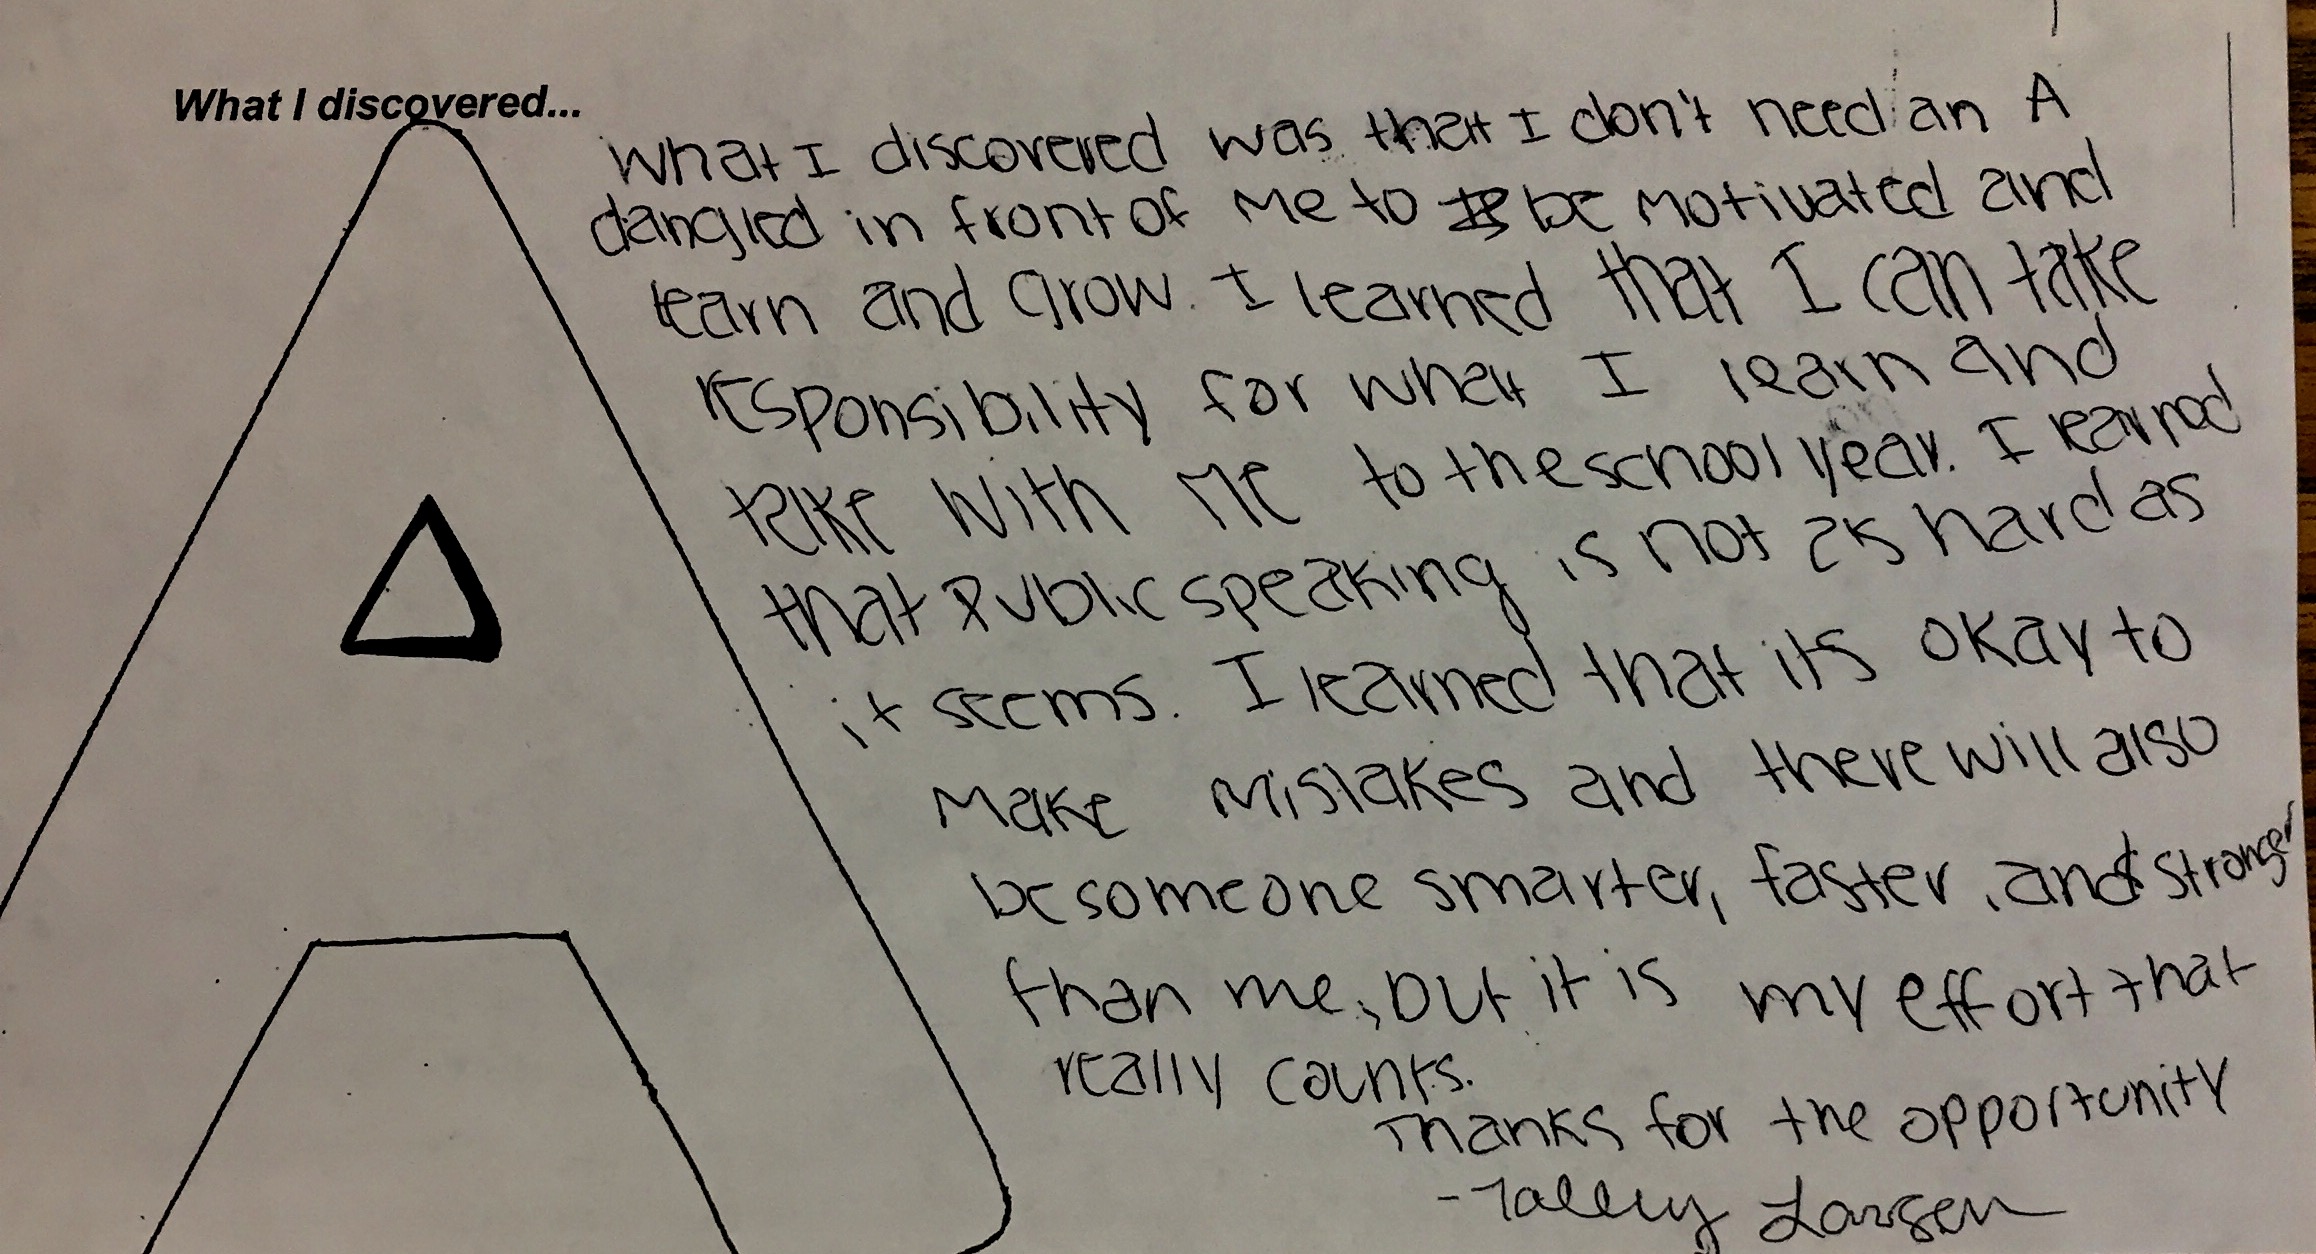 What I discovered...
What I discovered was that I don't need an A
dangled in front of me to be motivated and
learn and grow. I learned that I can take
responsibility for what I learn and
take with me to the school year. I learned
that public speaking is not as hard as
it seems. I learned that its okay to
make mistakes and there will also
be someone smarter, faster, and stronger
than me, but it is my effort that
really counts.
Thanks for the opportunity
- Larsen